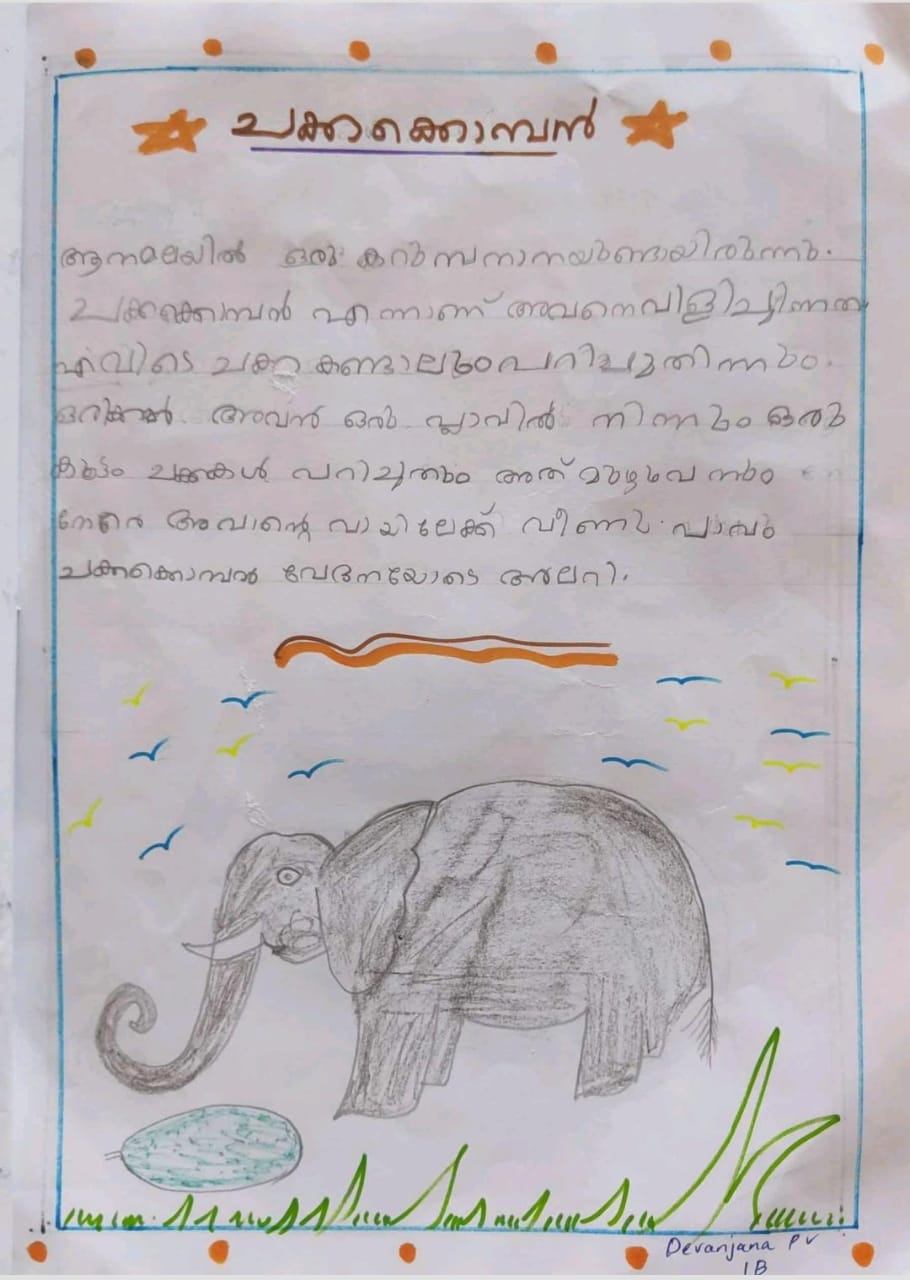 ചക്കക്കൊമ്പൻ
ആനമലയിൽ ഒരു കുറുമ്പനാനയുണ്ടായിരുന്നു.
ചക്കക്കൊമ്പൻ എന്നാണ് അവനെവിളിച്ചിന്നത
എവിടെ ചക്ക കണ്ടാലുംപറിച്ചുതിന്നും.
ഒരിക്കൽ അവൻ ഒരു പ്ലാവിൽ നിന്നും ഒരു
കൂട്ടം ചക്കകൾ പറിച്ചതും അത് മുഴുവനും
നേരെ അവാന്റെ വായിലേക്ക് വീണു. പാവം
ചക്കക്കൊമ്പൻ വേദനയോടെ അലറി.
Devanjana PV
1B